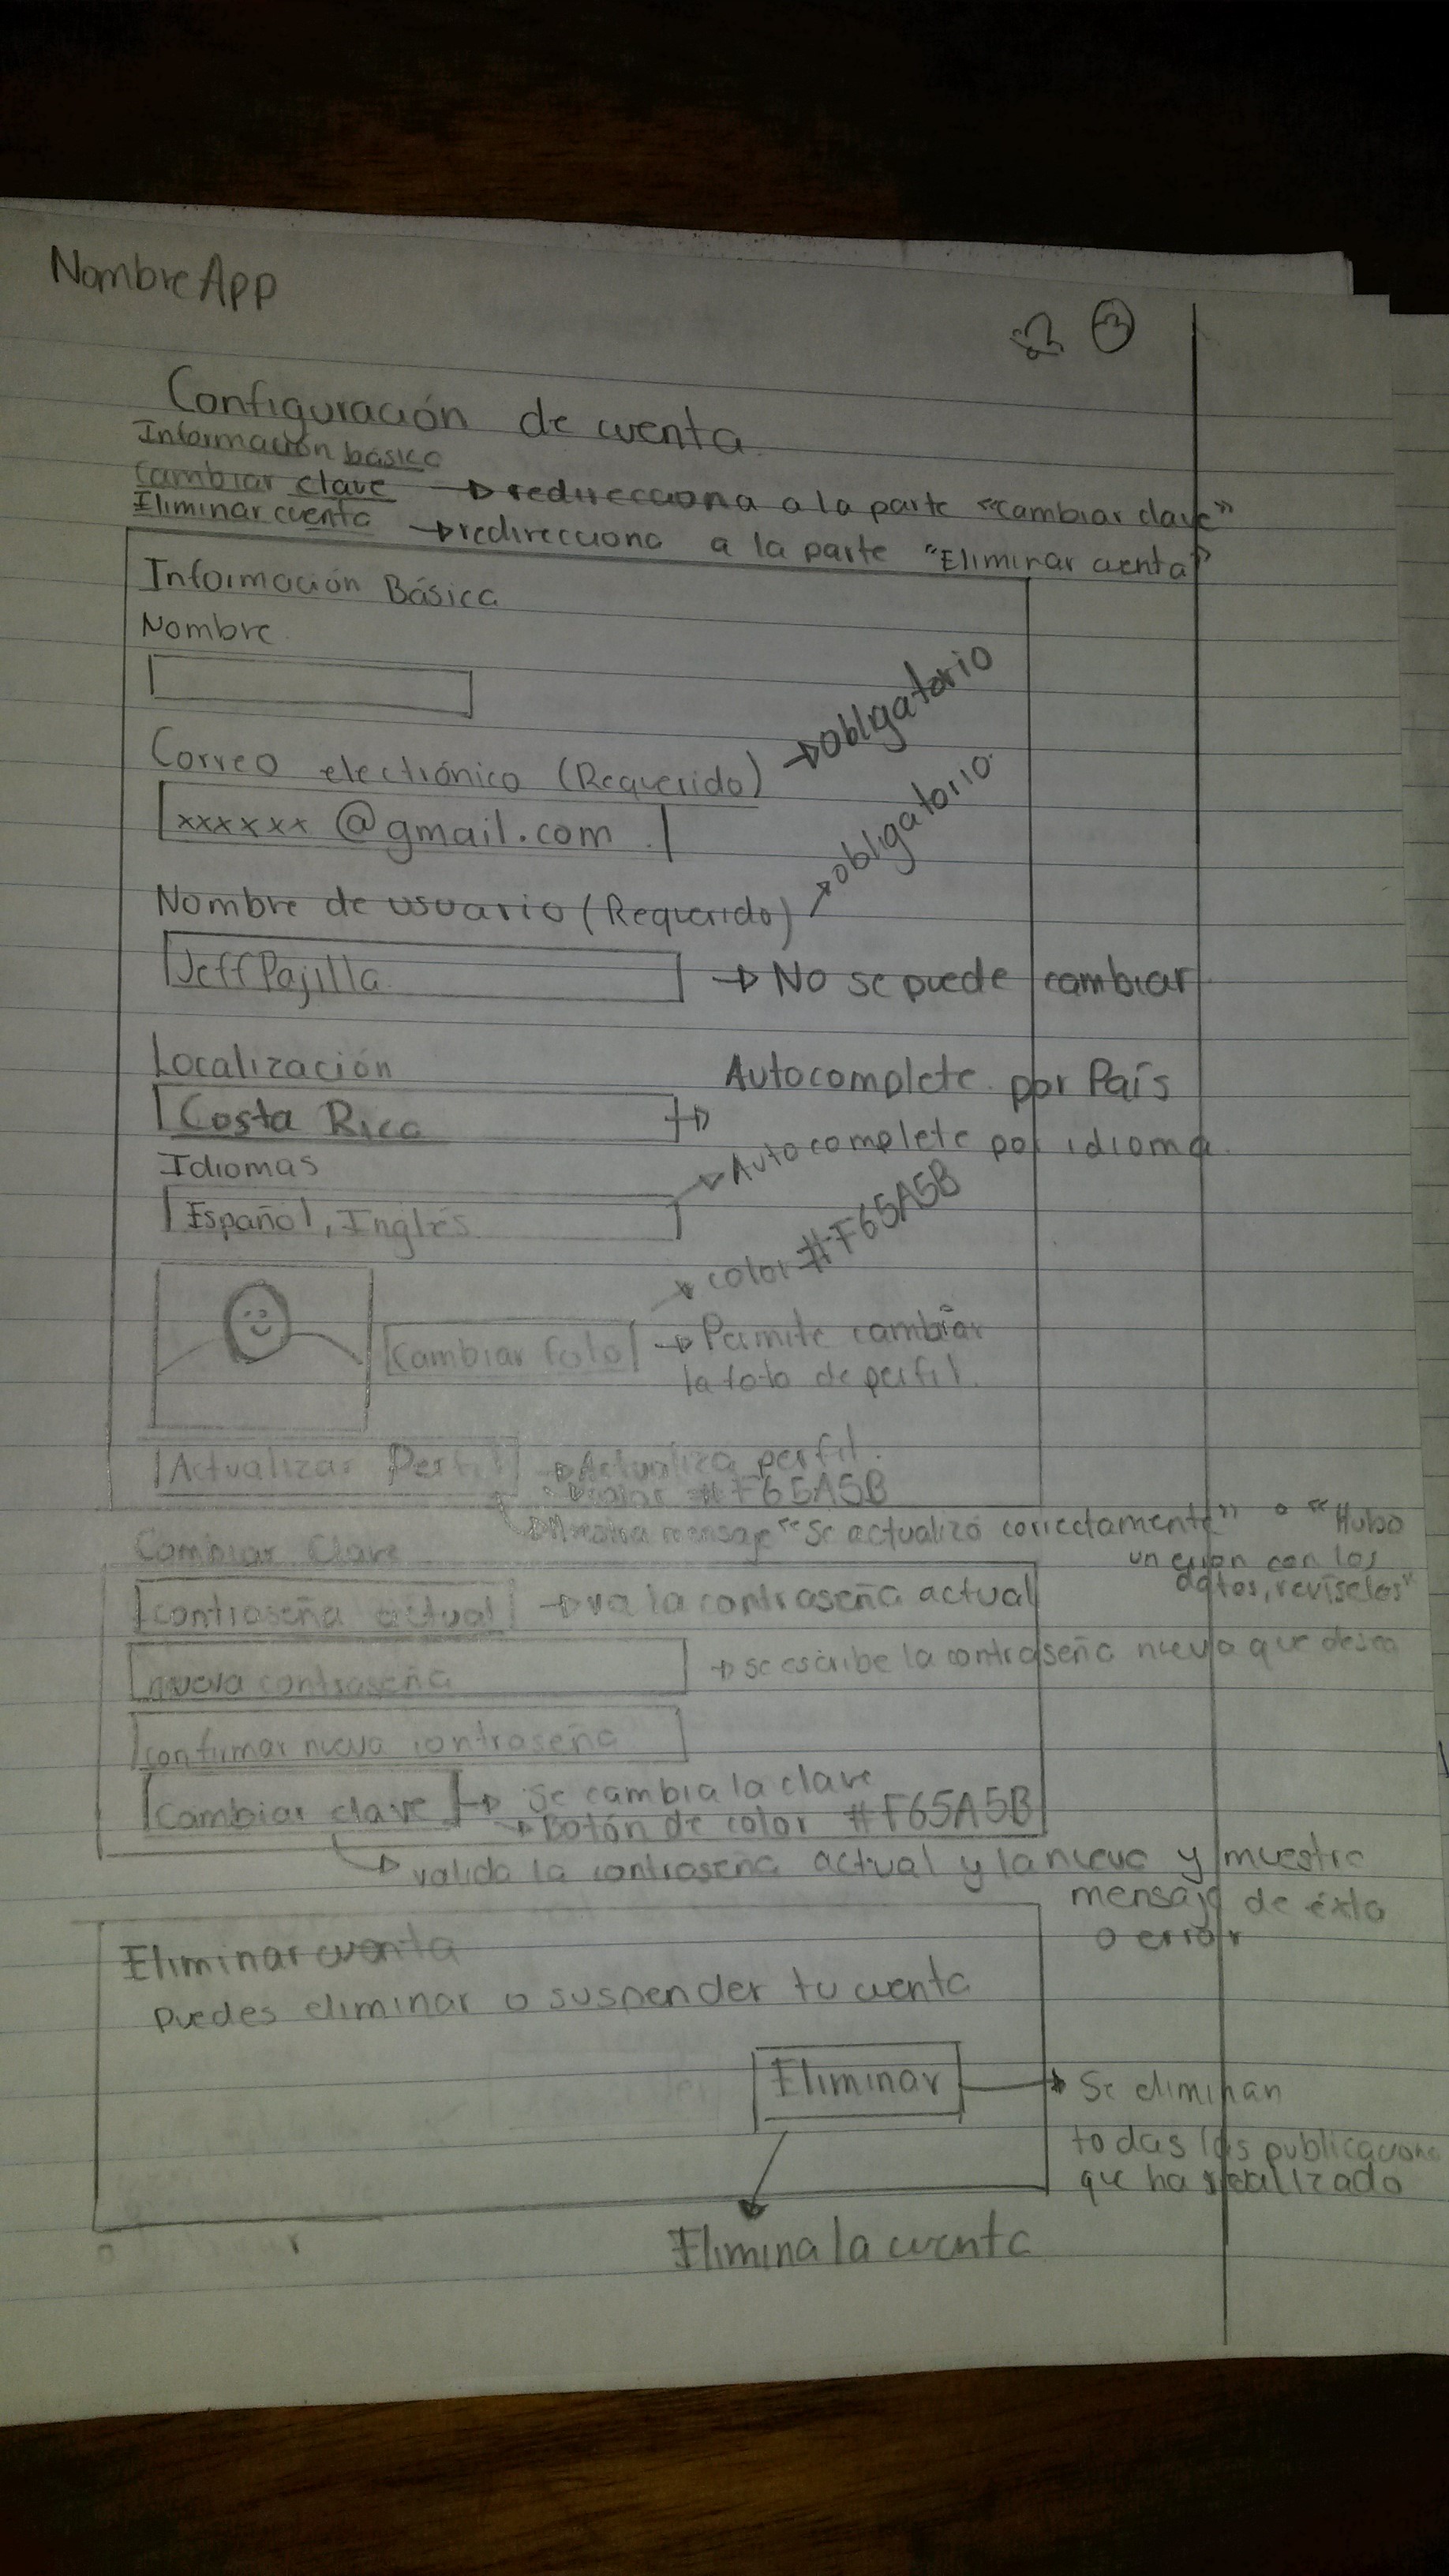 NombreApp
Configuración de cuenta
Información básica
Cambiar clave → redirecciona a la parte "cambiar clave"
Eliminar cuenta → redirecciona a la parte "Eliminar cuenta"
Información Básica
Nombre
Correo electrónico (Requerido) → obligatorio
xxxxxx @gmail.com
Nombre de usuario (Requerido) → obligatorio
JeffPajilla → No se puede cambiar
Localización
Costa Rica → Autocomplete por País
Idiomas → Autocomplete por idioma
Español, Inglés
→ color #F65A5B
Cambiar foto → Permite cambiar
la foto de perfil.
Actualizar Perfil → Actualiza perfil.
→ color #F65A5B
→ Muestra mensaje "Se actualizó correctamente" o "Hubo
un error con los
datos, revíselos"
Cambiar Clave
contraseña actual → va la contraseña actual
nueva contraseña → se escribe la contraseña nueva que desea
confirmar nueva contraseña
Cambiar clave → Se cambia la clave
→ Botón de color #F65A5B
→ valida la contraseña actual y la nueva y muestra
mensaje de éxito
o error
Eliminar cuenta
Puedes eliminar o suspender tu cuenta
Eliminar → Se eliminan
todas las publicaciones
que ha realizado
Elimina la cuenta